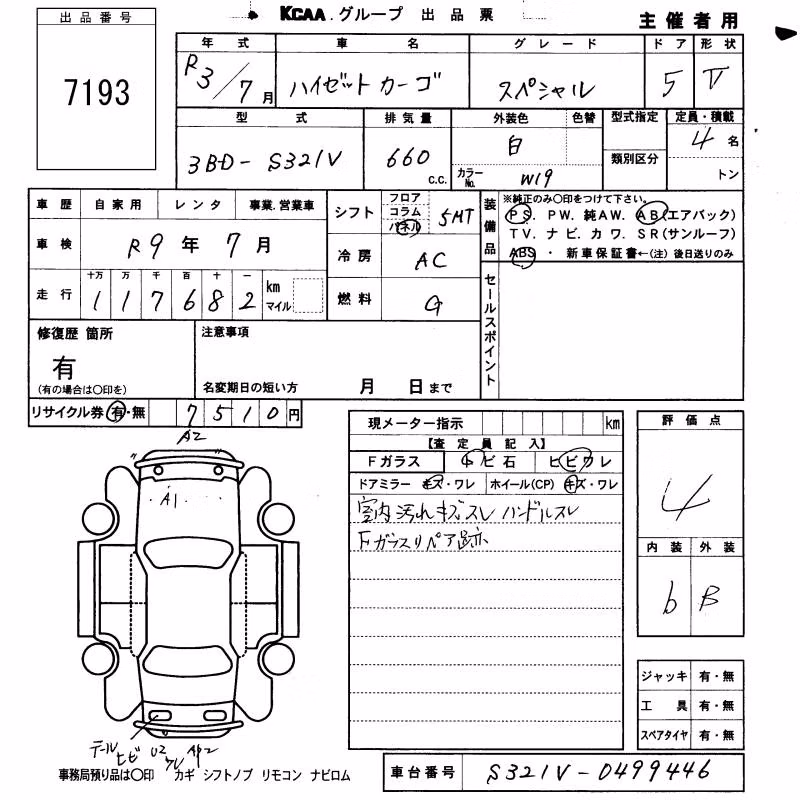 KCAA.グループ 出品票
主催者用
出品番号
7193
年式 車名 グレード ドア 形状
R3/7月 ハイゼットカーゴ スペシャル 5 V
型式 排気量 外装色 色替 型式指定 定員・積載
3BD-S321V 660 c.c. 白 カラーNo. W19 類別区分 4名 トン
車歴 自家用 レンタ 事業.営業車
シフト フロア コラム パネル 5MT
装備品 ※純正のみ〇印をつけて下さい。
PS. PW. 純AW. AB(エアバック)
TV. ナビ. カワ. SR(サンルーフ)
ABS ・ 新車保証書←(注)後日送りのみ
車検 R9年7月
冷房 AC
走行 十万 万 千 百 十 一
117682 km マイル
燃料 G
セールスポイント
修復歴 箇所 注意事項
有
(有の場合は〇印を) 名変期日の短い方 月 日まで
リサイクル券 有・無 7510円
現メーター指示 km
【査定員記入】
Fガラス トビ石 ヒビワレ
ドアミラー キズ・ワレ ホイール(CP) キズ・ワレ
室内汚れキズスレ ハンドルスレ
Fガラスリペア跡
評価点
4
内装 外装
b B
A2
A1
テールヒビ U2 ワレ AP2
ジャッキ 有・無
工具 有・無
スペアタイヤ 有・無
事務局預り品は〇印 カギ シフトノブ リモコン ナビロム
車台番号 S321V-0499446